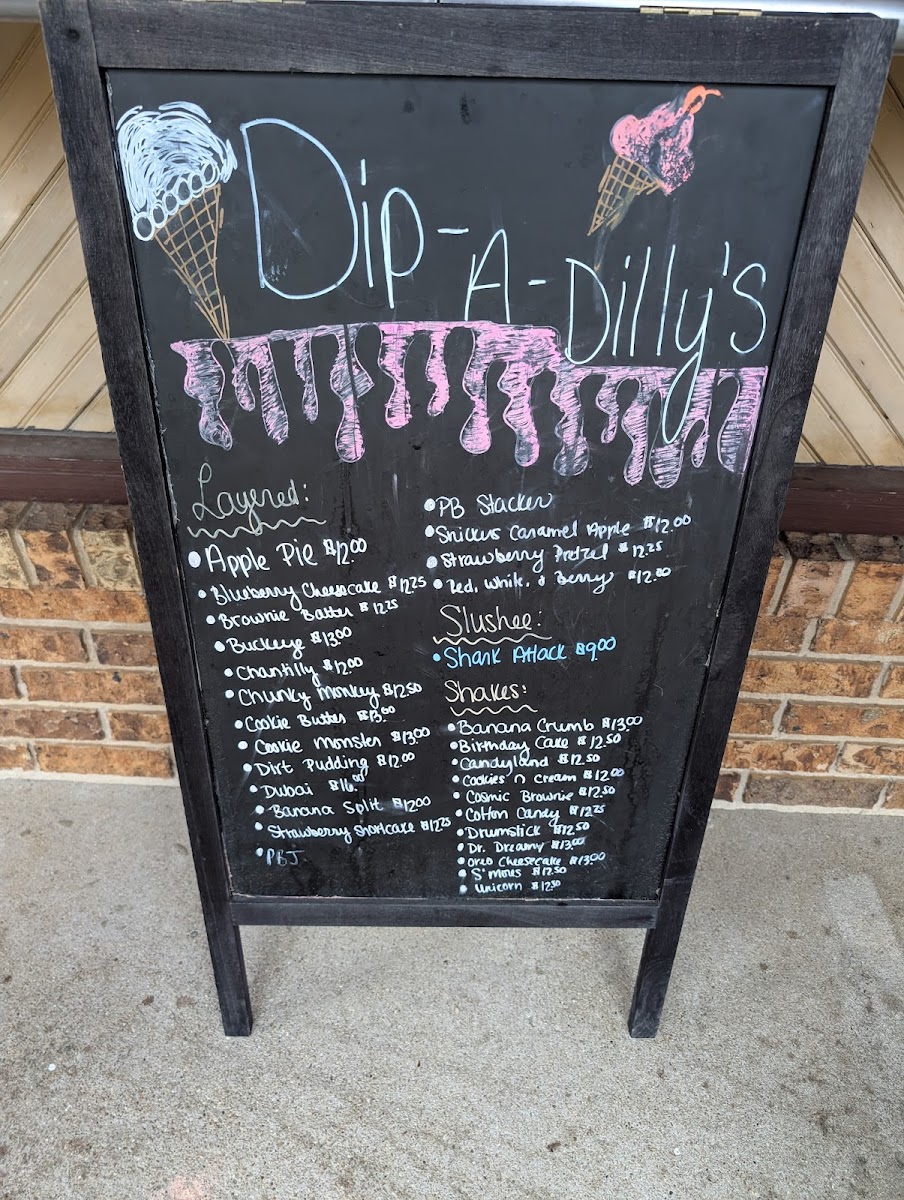 Dip-A-Dilly's
Layered:
• Apple Pie $12.00
• Blueberry Cheesecake $12.25
• Brownie Batter $12.25
• Buckeye $13.00
• Chantilly $12.00
• Chunky Monkey $12.50
• Cookie Butter $13.00
• Cookie Monster $13.00
• Dirt Pudding $12.00
• Dubai $16.00
• Banana Split $12.00
• Strawberry Shortcake $12.25
• PBJ
• PB Stacker
• Snickers Caramel Apple $12.00
• Strawberry Pretzel $12.25
• Red, White, & Berry $12.00
Slushee:
• Shark Attack $9.00
Shakes:
• Banana Crumb $13.00
• Birthday Cake $12.50
• Candyland $12.50
• Cookies n Cream $12.00
• Cosmic Brownie $12.50
• Cotton Candy $12.25
• Drumstick $12.50
• Dr. Dreamy $13.00
• Oreo Cheesecake $13.00
• S'mores $12.50
• Unicorn $12.50